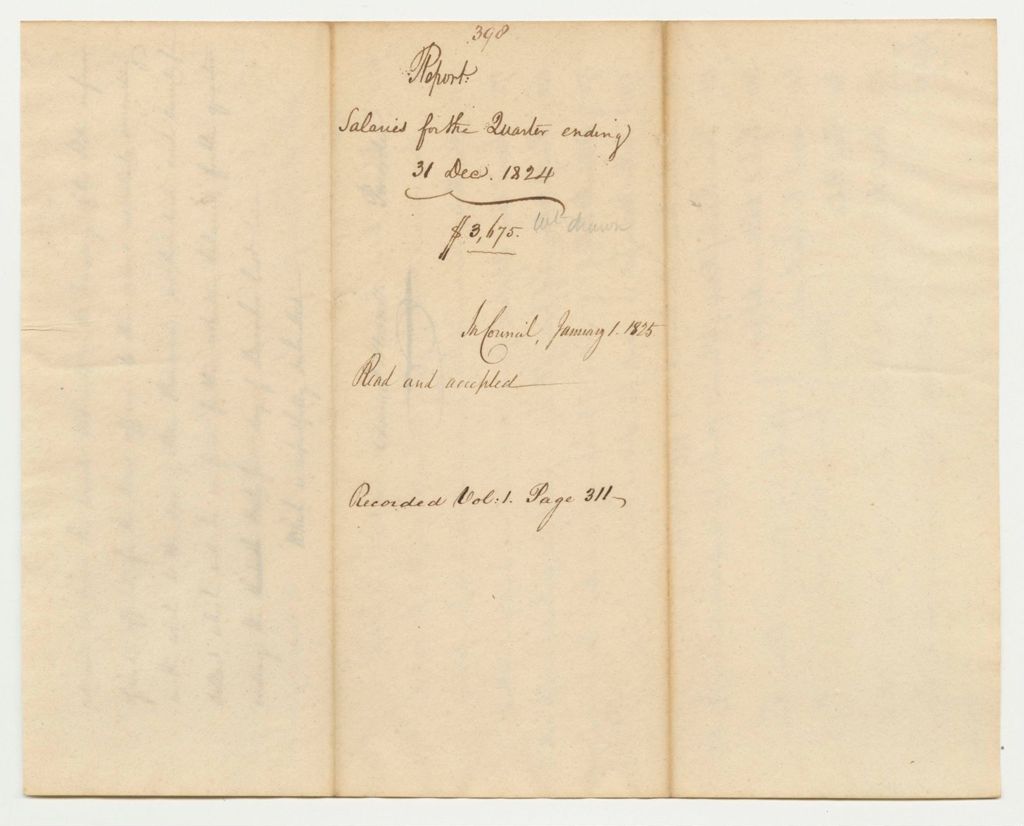 398
Report.
Salaries for the Quarter ending
31 Dec. 1824
$3,675. Wt drawn
In Council, January 1. 1825
Read and accepted
Recorded Vol: 1. Page 311